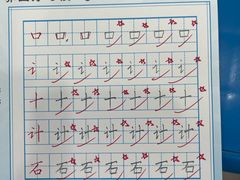 口 口 口 口 口 口 口
讠 讠 讠 讠 讠 讠 讠
十 十 十 十 十 十 十
计 计 计 计 计 计 计
石 石 石 石 石 石 石